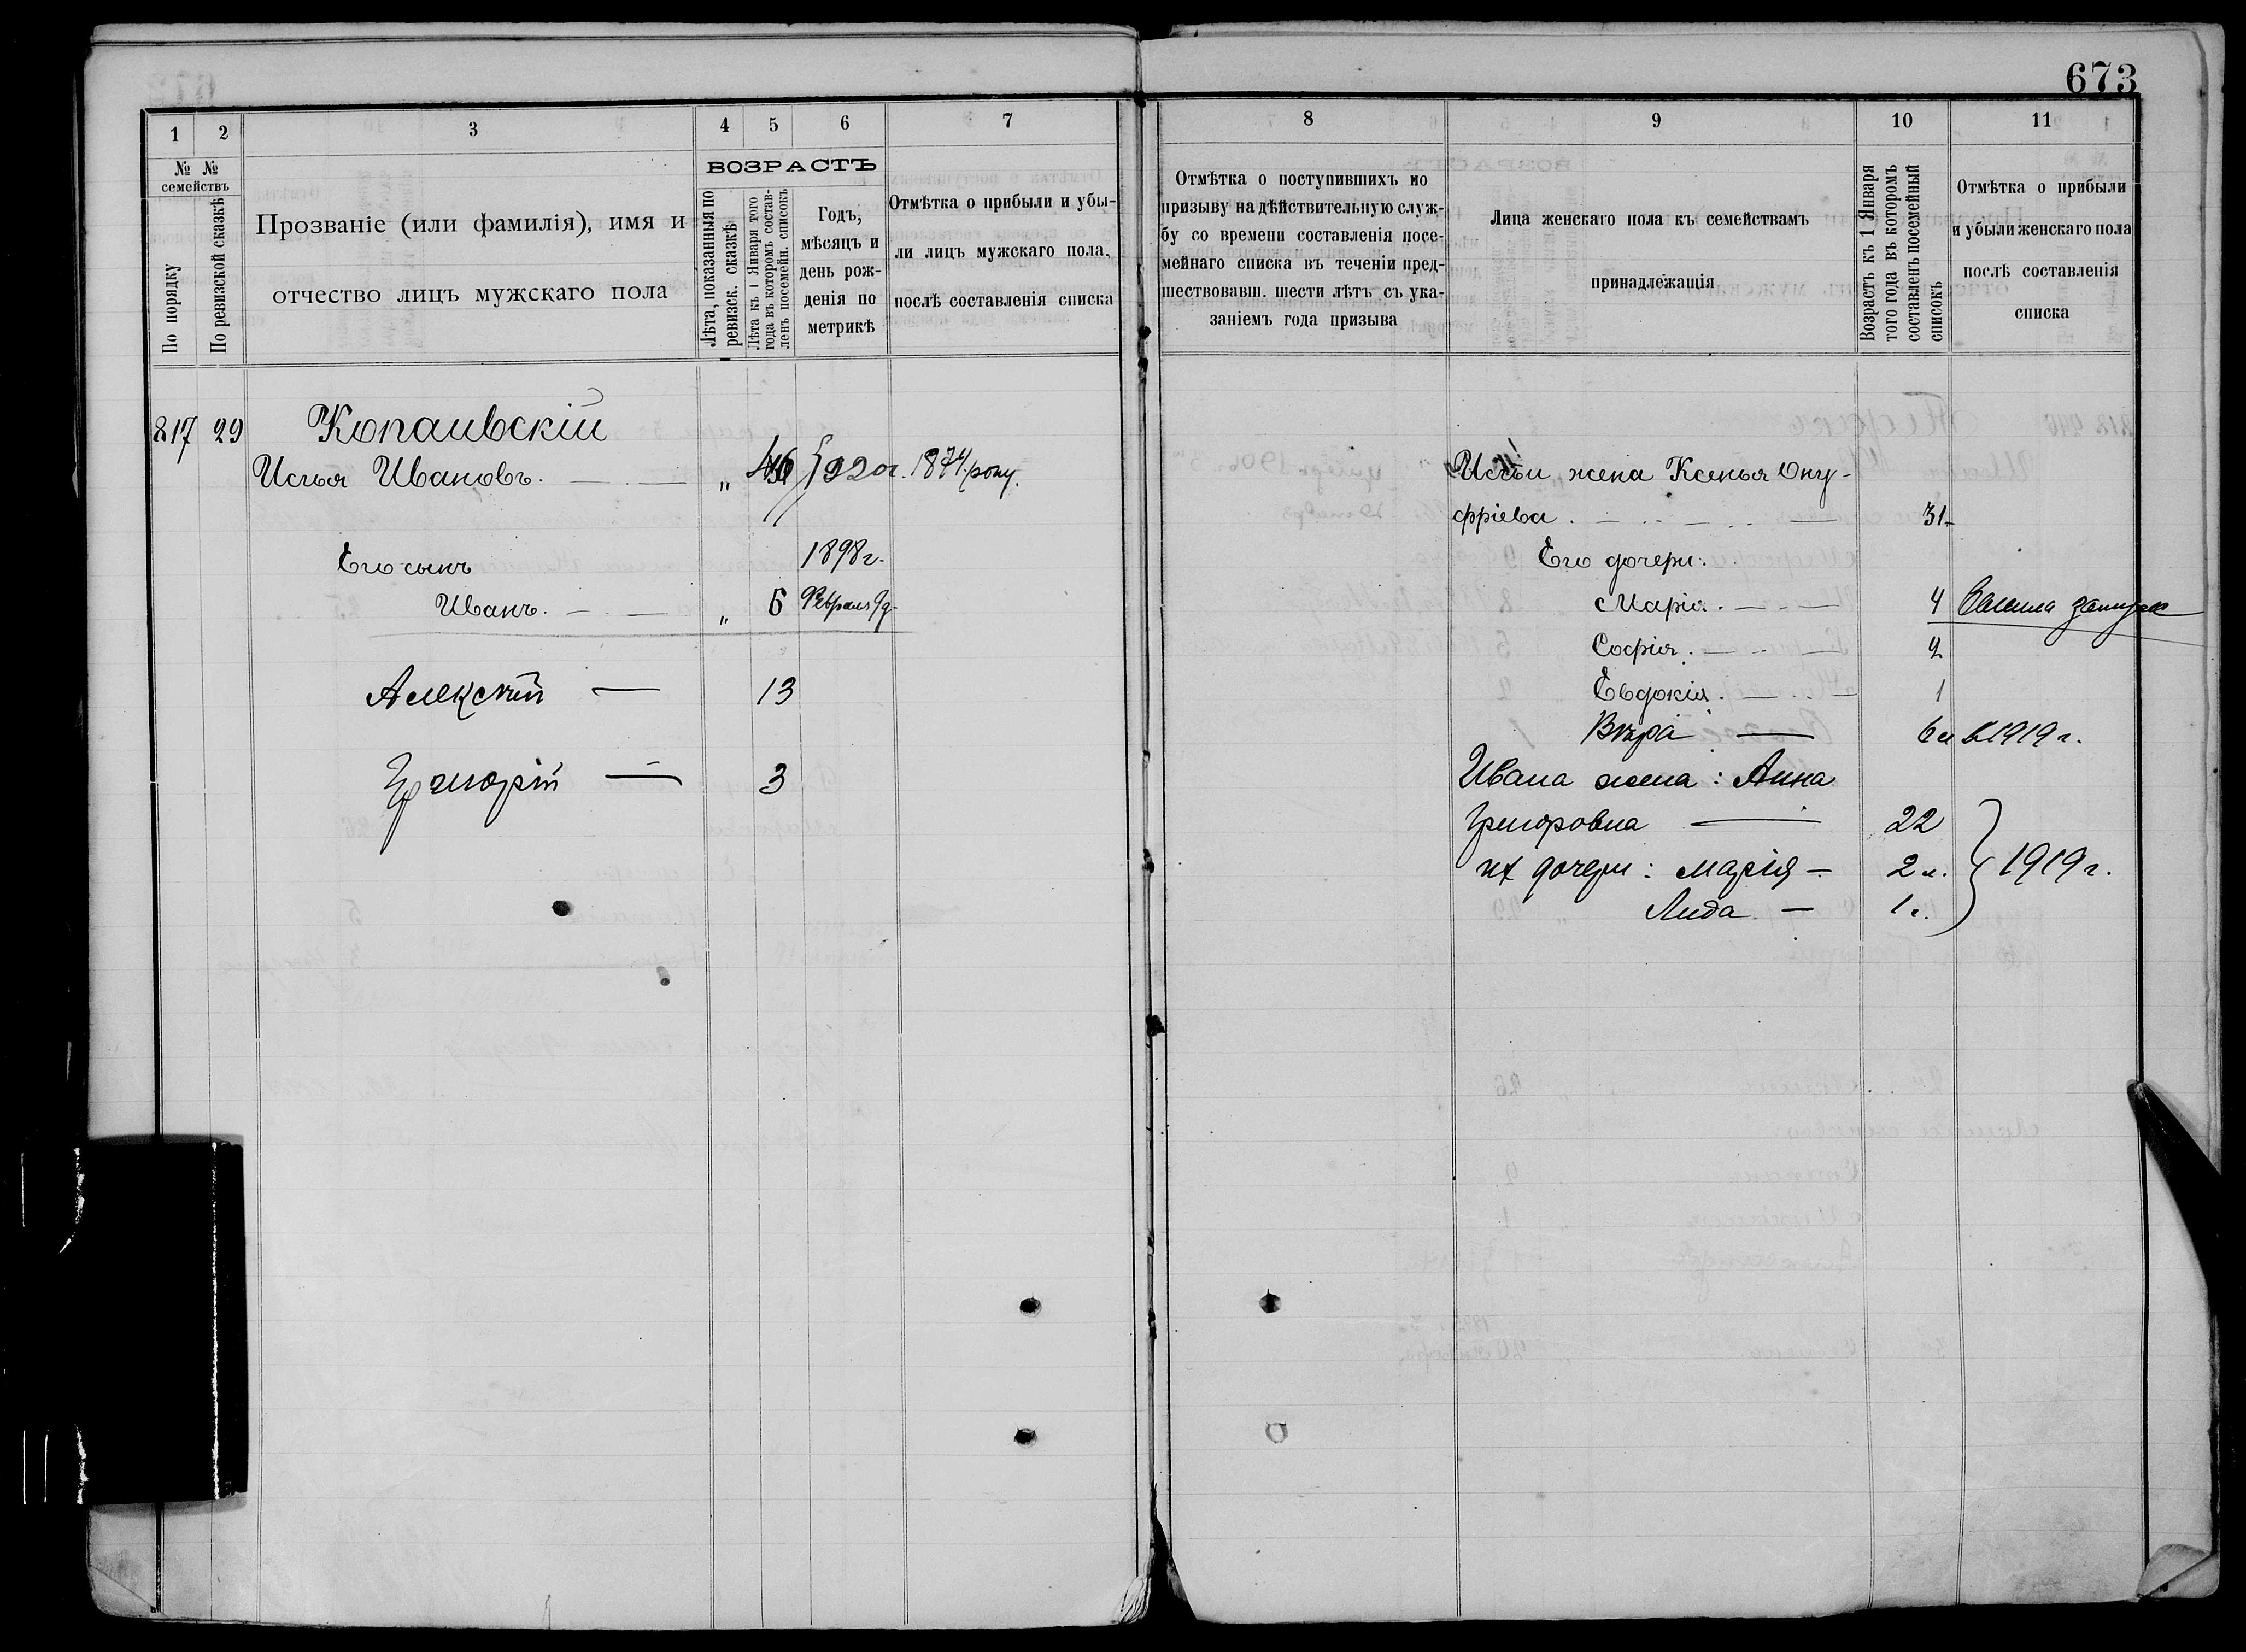 673
1 2 3 4 5 6 7
№ № семействъ
По порядку
По ревизской сказкѣ
Прозваніе (или фамилія), имя и
отчество лицъ мужскаго пола
ВОЗРАСТЪ
Лѣта, показанныя по
ревизск. сказкѣ
Лѣта къ 1 Января того
года въ которомъ состав-
ленъ посемейн. списокъ
Годъ,
мѣсяцъ и
день рож-
денія по
метрикѣ
Отмѣтка о прибыли и убы-
ли лицъ мужскаго пола,
послѣ составленія списка
817 29 Копаивскій
Илья Ивановъ. — „ 46 1920г. 1874 року.
Его сынъ 1898г.
Иванъ. — „ 6 Февраля 9 д.
Алексѣй — 13
Григорій — 3
8 9 10 11
Отмѣтка о поступившихъ по
призыву на дѣйствительную служ-
бу со времени составленія посе-
мейнаго списка въ теченіи пред-
шествовавш. шести лѣтъ съ ука-
заніемъ года призыва
Лица женскаго пола къ семействамъ
принадлежащія
Возрастъ къ 1 Января
того года въ которомъ
составленъ посемейный
списокъ
Отмѣтка о прибыли
и убыли женскаго пола
послѣ составленія
списка
Ильи жена Ксенья Ону-
фріева. — 31
Его дочери:
Марія. — 4 замуж
Софія. — 2
Евдокія. — 1
Вѣра — 6 л в 1919 г.
Ивана жена: Анна
Григоровна — 22
их дочери: Марія — 2 л. 1919 г.
Лида — 1 г.